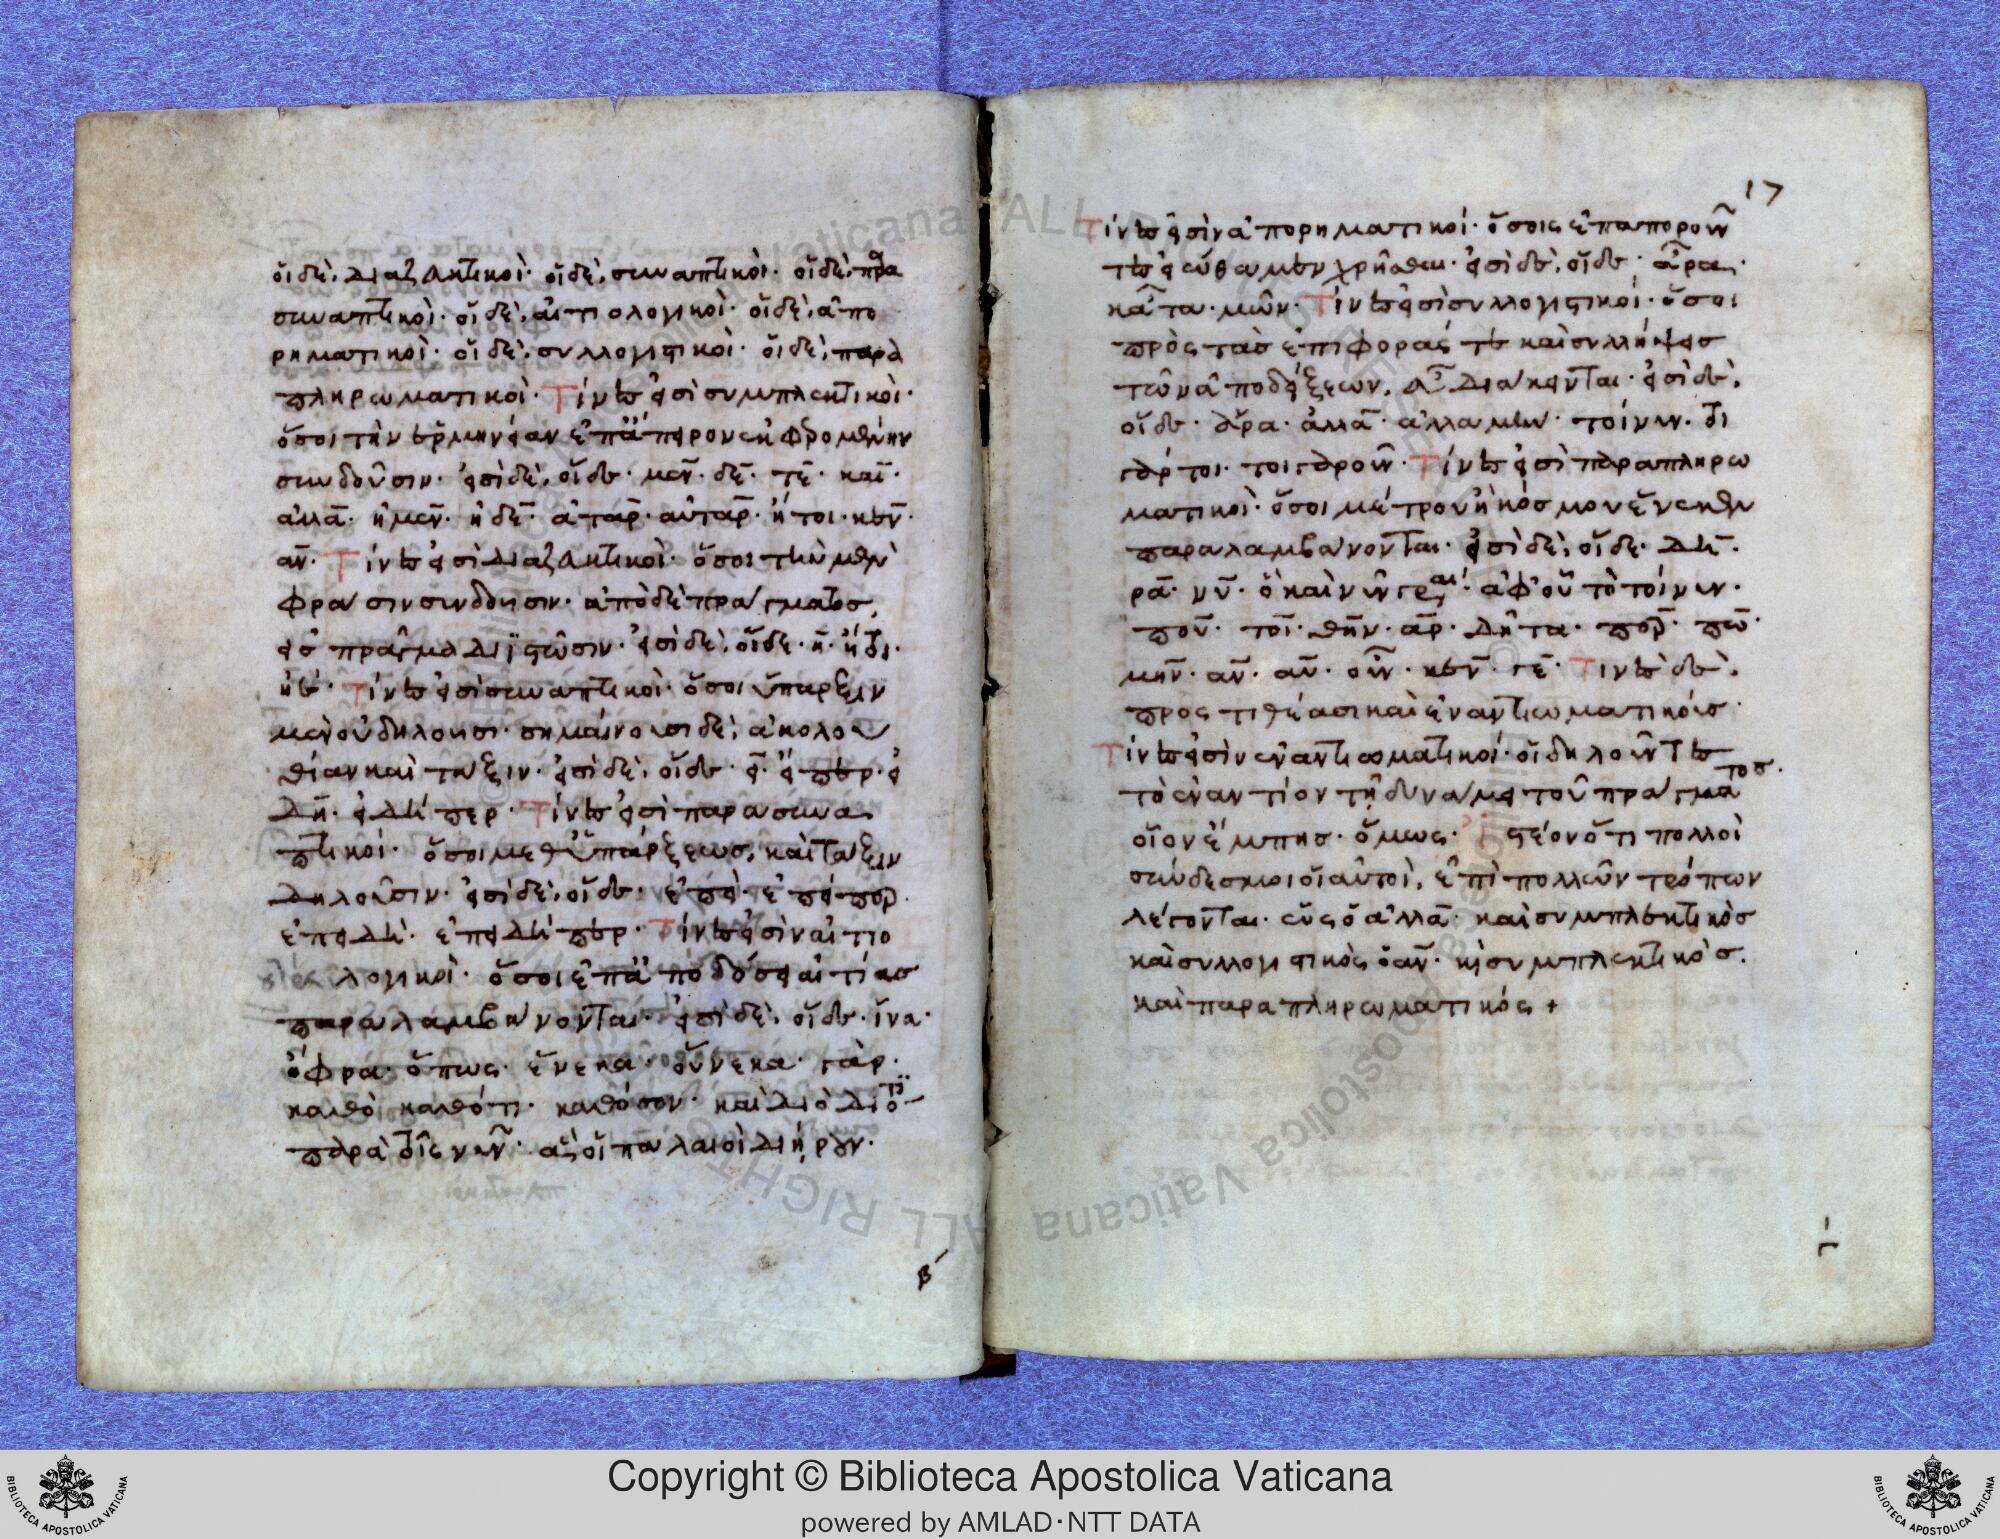 οἱ δὲ, διαζευκτικοί· οἱ δὲ, συναπτικοὶ· οἱ δὲ, παρα
συναπτικοί· οἱ δὲ, αἰτιολογικοὶ· οἱ δὲ, ἀπο
ρηματικοὶ· οἱ δὲ, συλλογιστικοὶ· οἱ δὲ, παρα
πληρωματικοὶ· Τίνες εἰσὶ συμπλεκτικοὶ·
ὅσοι τὴν ἑρμηνείαν ἐπ' ἄπειρον ἐκφερομένην
συνδοῦσιν· εἰσὶ δὲ, οἵδε· μεν· δε· τε· και·
αλλα· ἠμεν· ἠδε· ἀταρ· αὐταρ· ἤτοι· κεν·
αν· Τίνες εἰσὶ διαζευκτικοὶ· ὅσοι τὴν μὲν
φράσιν συνδέουσιν· ἀπὸ δὲ πράγματος
εἰς πρᾶγμα διϊστῶσιν· εἰσὶ δὲ, οἵδε· ἢ· ἤτοι·
ἠέ· Τίνες εἰσὶ συναπτικοὶ· ὅσοι ὕπαρξιν
μὲν οὐ δηλοῦσι· σημαίνουσι δὲ, ἀκολου
θίαν καὶ τάξιν· εἰσὶ δὲ, οἵδε· εἰ· εἴπερ· εἰ
δη· εἰδήπερ· Τίνες εἰσὶ παρασυνα
πτικοί· ὅσοι μεθ' ὑπάρξεως, καὶ τάξιν
δηλοῦσιν· εἰσὶ δὲ, οἵδε· ἐπεὶ· ἐπείπερ·
ἐπειδή· ἐπειδήπερ· Τίνες εἰσὶν αἰτιο
λογικοὶ· ὅσοι ἐπ' ἀποδόσει αἰτίας
παραλαμβάνονται· εἰσὶ δὲ, οἵδε· ἵνα·
ὄφρα· ὅπως· ἕνεκα· οὕνεκα· γὰρ·
καθὸ καθότι· καθόσον· καὶ διὸ διότι
παρὰ τοῖς νῦν· ἃς οἱ παλαιοὶ διῄρουν·
β
17
Τίνες εἰσὶν ἀπορηματικοί· ὅσοις ἐπαποροῦν
τες εἰώθαμεν χρῆσθαι· εἰσὶ δὲ, οἵδε· ἆρα·
κᾆτα· μῶν· Τίνες εἰσὶ συλλογιστικοί· ὅσοι
πρὸς τὰς ἐπιφοράς τε καὶ συλλήψεις
τῶν ἀποδείξεων, εὖ διάκεινται· εἰσὶ δὲ,
οἵδε· ἄρα· ἀλλα· ἀλλαμην· τοίνυν· τοι
γάρτοι· τοιγαροῦν· Τίνες εἰσὶ παραπληρω
ματικοὶ· ὅσοι μέτρου ἢ κόσμου ἕνεκεν
παραλαμβάνονται· εἰσὶ δὲ, οἵδε· δη·
ρα· νυ· ὃ καὶ νῦν γε· ἀφ' οὗ τὸ τοίνυν·
που· τοι· θην· αρ· δῆτα· περ· πω·
μην· αν· αυ· οῦν· κεν· γε· Τινὲς δὲ,
προστιθέασι καὶ ἐναντιωματικούς·
Τίνες εἰσὶν ἐναντιωματικοί· οἱ δηλοῦντες
τὸ ἐναντίον τῇ δυνάμει τοῦ πράγματος·
οἷον ἔμπης· ὅμως· Ἰστέον ὅτι πολλοὶ
σύνδεσμοι οἱ αὐτοὶ, ἐπὶ πολλῶν τρόπων
λέγονται· ὡς ὁ ἀλλα· καὶ συμπλεκτικὸς
καὶ συλλογιστικός· ὁ αν· κὶ συμπλεκτικὸς.
καὶ παραπληρωματικός +
Γ
Copyright © Biblioteca Apostolica Vaticana
powered by AMLAD·NTT DATA
BIBLIOTECA APOSTOLICA VATICANA
BIBLIOTECA APOSTOLICA VATICANA